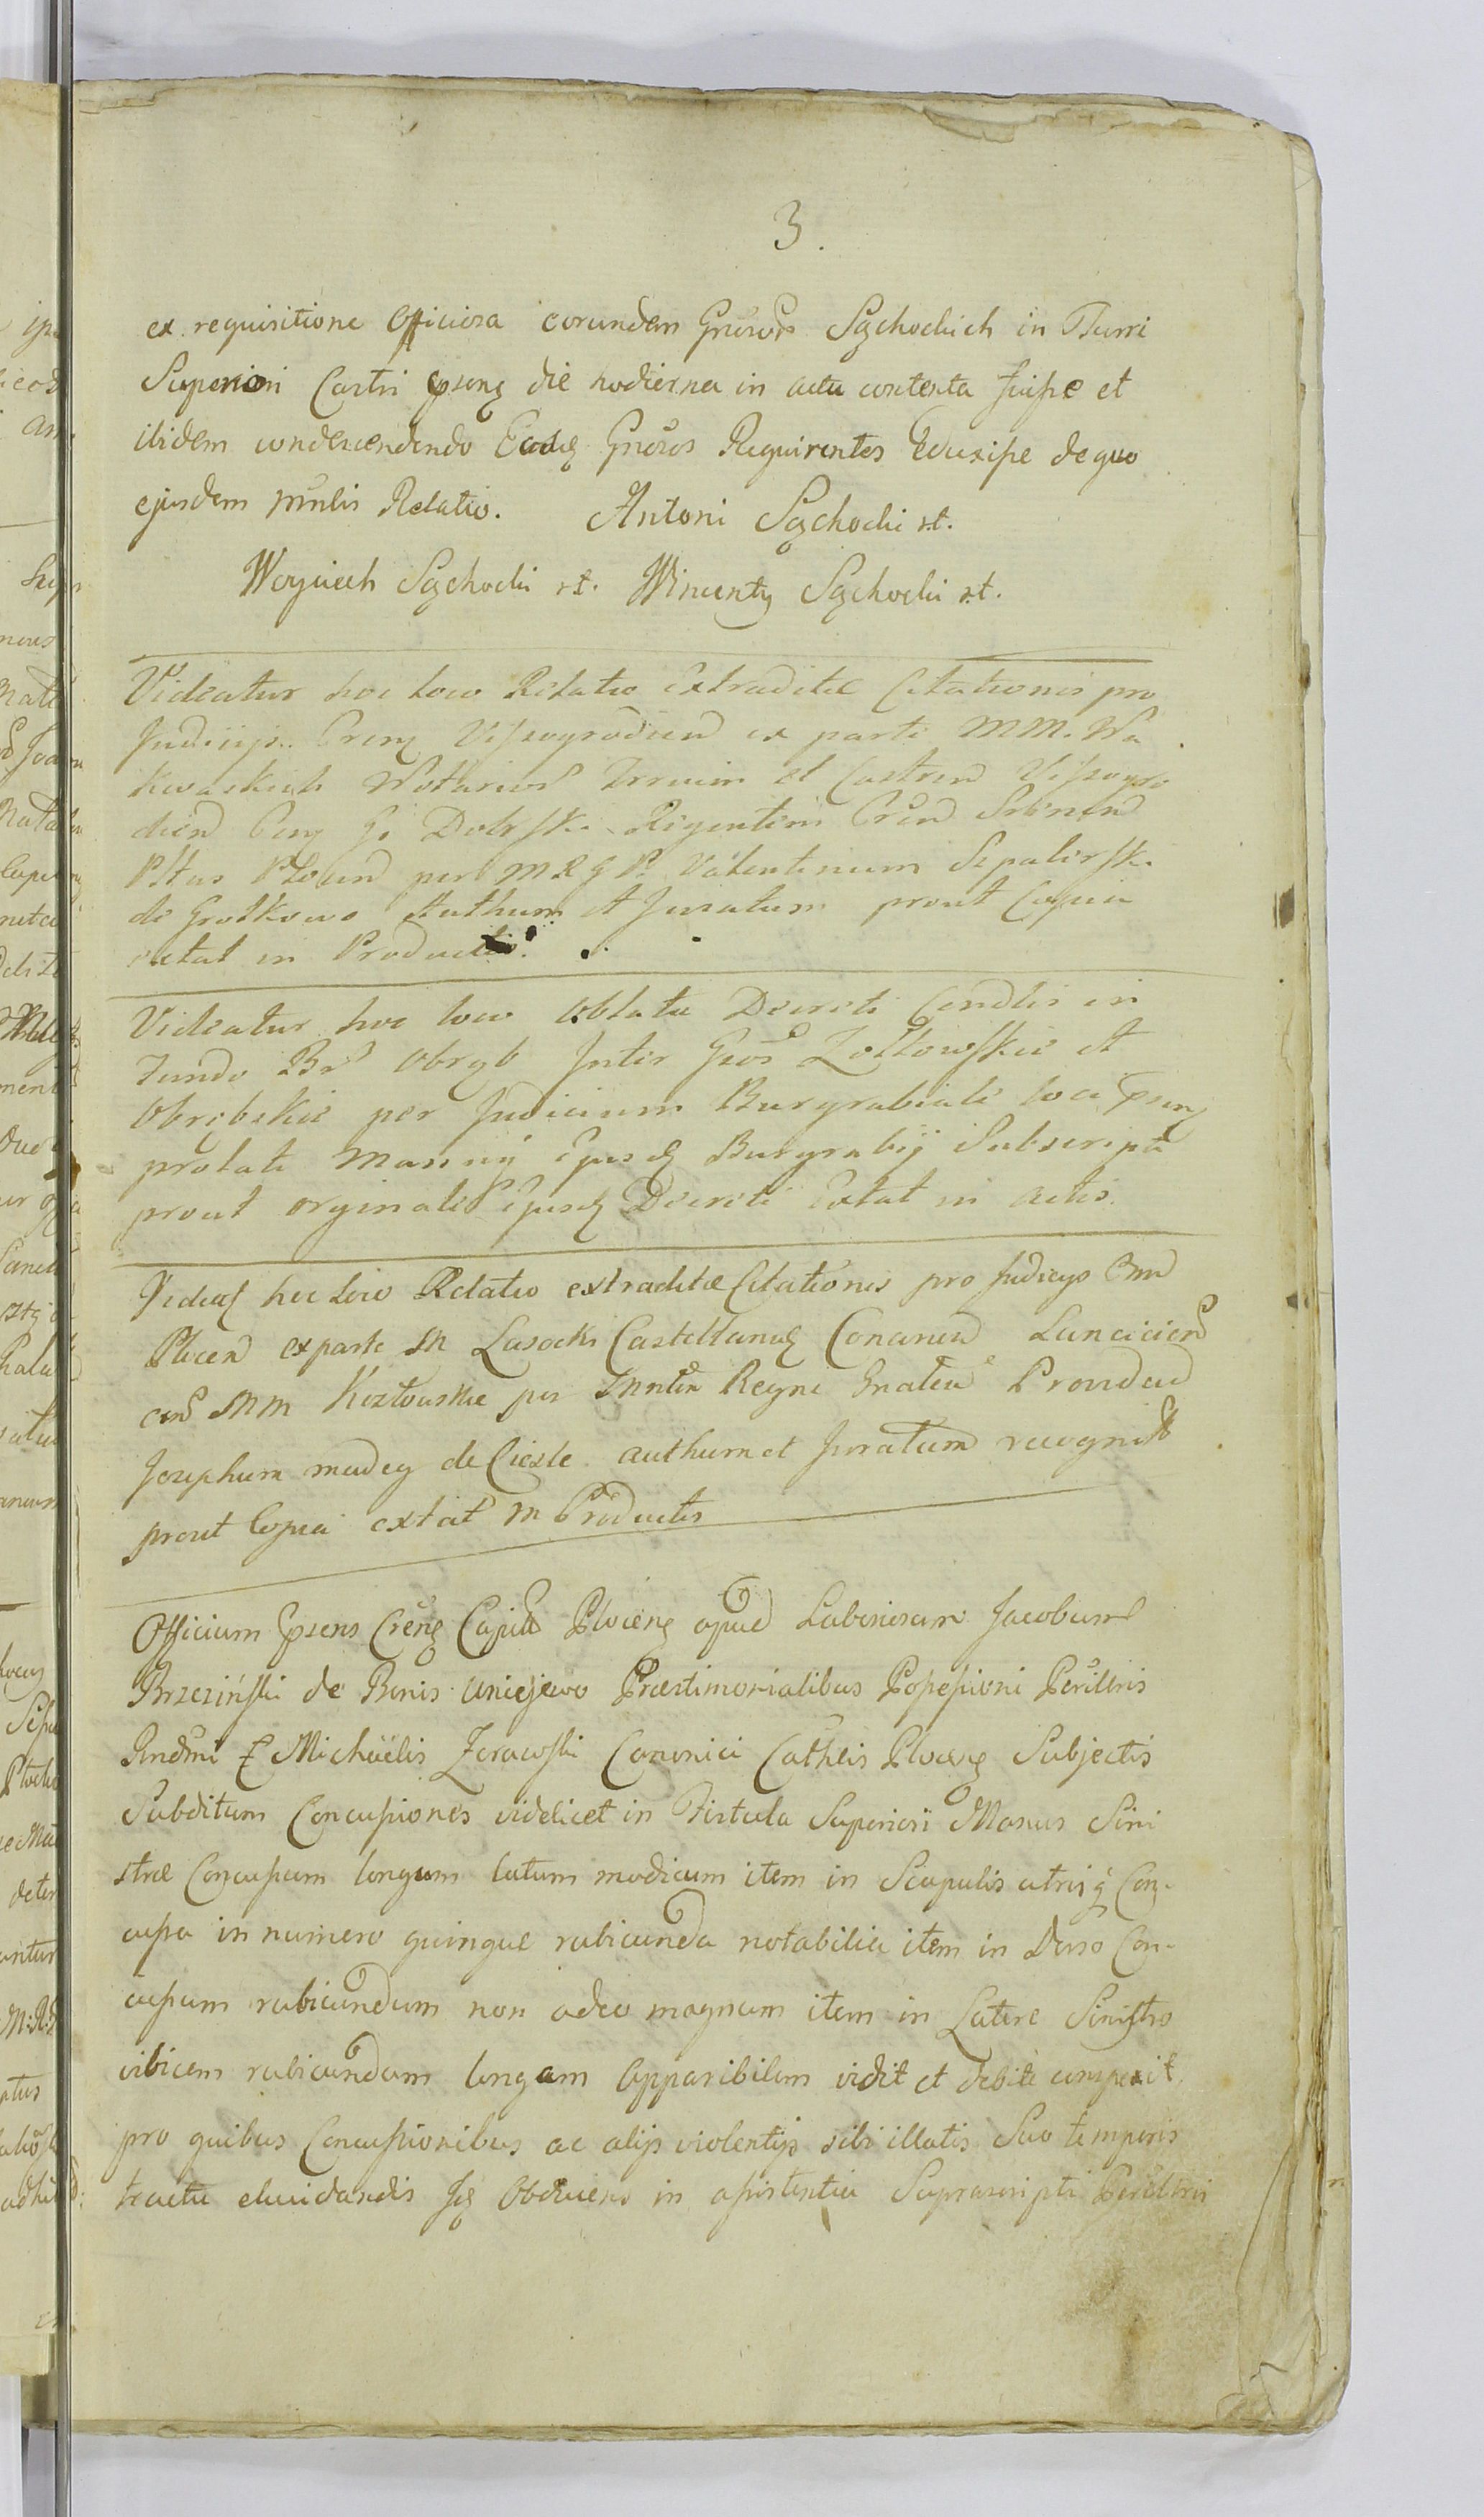 3.
ex requisitione Officiosa eorundem Gnosos Sąchockich in Turri
Superiori Castri psens die hodierna in actu contenta fuisse et
ibidem condescendendo Eosd Gnosos Requirentes Eduxisse de quo
ejusdem mnlis Relatio. Antoni Sąchocki st.
Woyciech Sąchocki st. Wincenty Sąchocki st.
Videatur hoc loco Relatio extraditæ Citationis pro
Judicijs Crens Vissogrodien ex parte MM. Wa
kwaskich Notarios Trruim et Castren Vissogro
dien Cens G. Dobrski Regentem Cren
Pttus Plocen per M R G P. Valentinum Szpalirski
de Grotkowo Authum et Juratum prout Copia
extat in Productis.
Videatur hoc loco Oblata Decreti Cendlis in
Fundo Br Obrąb Inter Gsos Zołtowskie et
Obrębskie per Judicium Burgrabiale loci psens
prolati Manuq Ejusd Burgrabij Subscripti
prout orginale Ejusd Decreti Extat in Actis.
Videat hoc loco Relatio extraditæ Citationis pro Judicijs
Plocen ex parte M Lasocki Castellanus Conaren Lancicien
cen MM Kozłowskie per Mntem Regni Gnalem Providum
Josephum madey de Ciesle authum et Juratum recognit
prout Copia extat in Productis
Officium psens Crens Capit Plocens apud Laboriosum Jacobum
Brzeziński de Bonis Uniejewo Præstimonialibus Possessioni Perilltris
Rndmi Michaelis Zorawski Canonici Cathlis Plocens Subjectis
Subditum Concussiones videlicet in Fistula Superiori Manus Sini
stræ Concussum longum latum modicum item in Scapulis utrisq Con-
cussa in numero quinque rubicunda notabilia item in Dorso Con-
cussum rubicundum non adeo magnum item in Latere Sinistro
vibicem rubicundam longam Apparibilem vidit et debite conspexit
pro quibus Concussionibus ac alijs violentijs sibi illatis Suo temporis
tractu elucidandis Jd Obducens in assistentia Suprascripti Perilltris